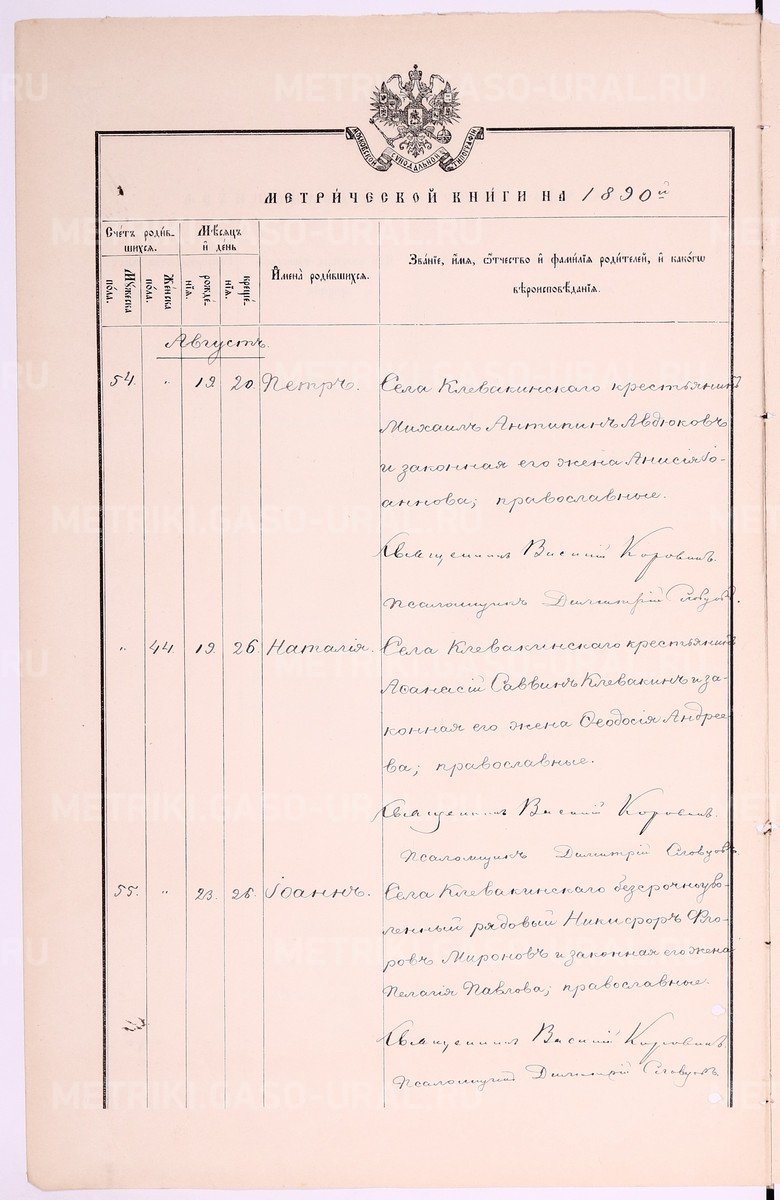 METRIKI.GASO-URAL.RU
МОСКОВСКОЙ СѴНОДАЛЬНОЙ ТИПОГРАФІИ
МЕТРИ́ЧЕСКОЙ КНИ́ГИ НА 1890й
Сче́тъ роди́вшихсѧ.
Мꙋ́жеска по́ла.
Же́нска по́ла.
Мѣ́сѧцъ и҆ де́нь
рожде́нїѧ.
креще́нїѧ.
И҆мена̀ роди́вшихсѧ.
Зва́нїе, и҆́мѧ, ѻ҆́тчество и҆ фами́лїѧ роди́телей, и҆ како́гѡ
вѣроисповѣ́данїѧ.
Августъ.
54. " 19. 20. Петръ. Села Клевакинскаго крестьянинъ
Михаилъ Антипинъ Авдюковъ
и законная его жена Анисія Іо-
аннова; православные.
Священникъ Василій Коровинъ.
Псаломщикъ Димитрій Словцовъ.
" 44. 19. 26. Наталія. Села Клевакинскаго крестьянинъ
Аѳанасій Саввинъ Клевакинъ и за-
конная его жена Ѳеодосія Андрее-
ва; православные.
Священникъ Василій Коровинъ.
Псаломщикъ Димитрій Словцовъ.
55. " 23. 26. Іоаннъ. Села Клевакинскаго безсрочноуво-
ленный рядовый Никифоръ Его-
ровъ Мироновъ и законная его жена
Пелагія Павлова; православные.
Священникъ Василій Коровинъ
Псаломщикъ Димитрій Словцовъ